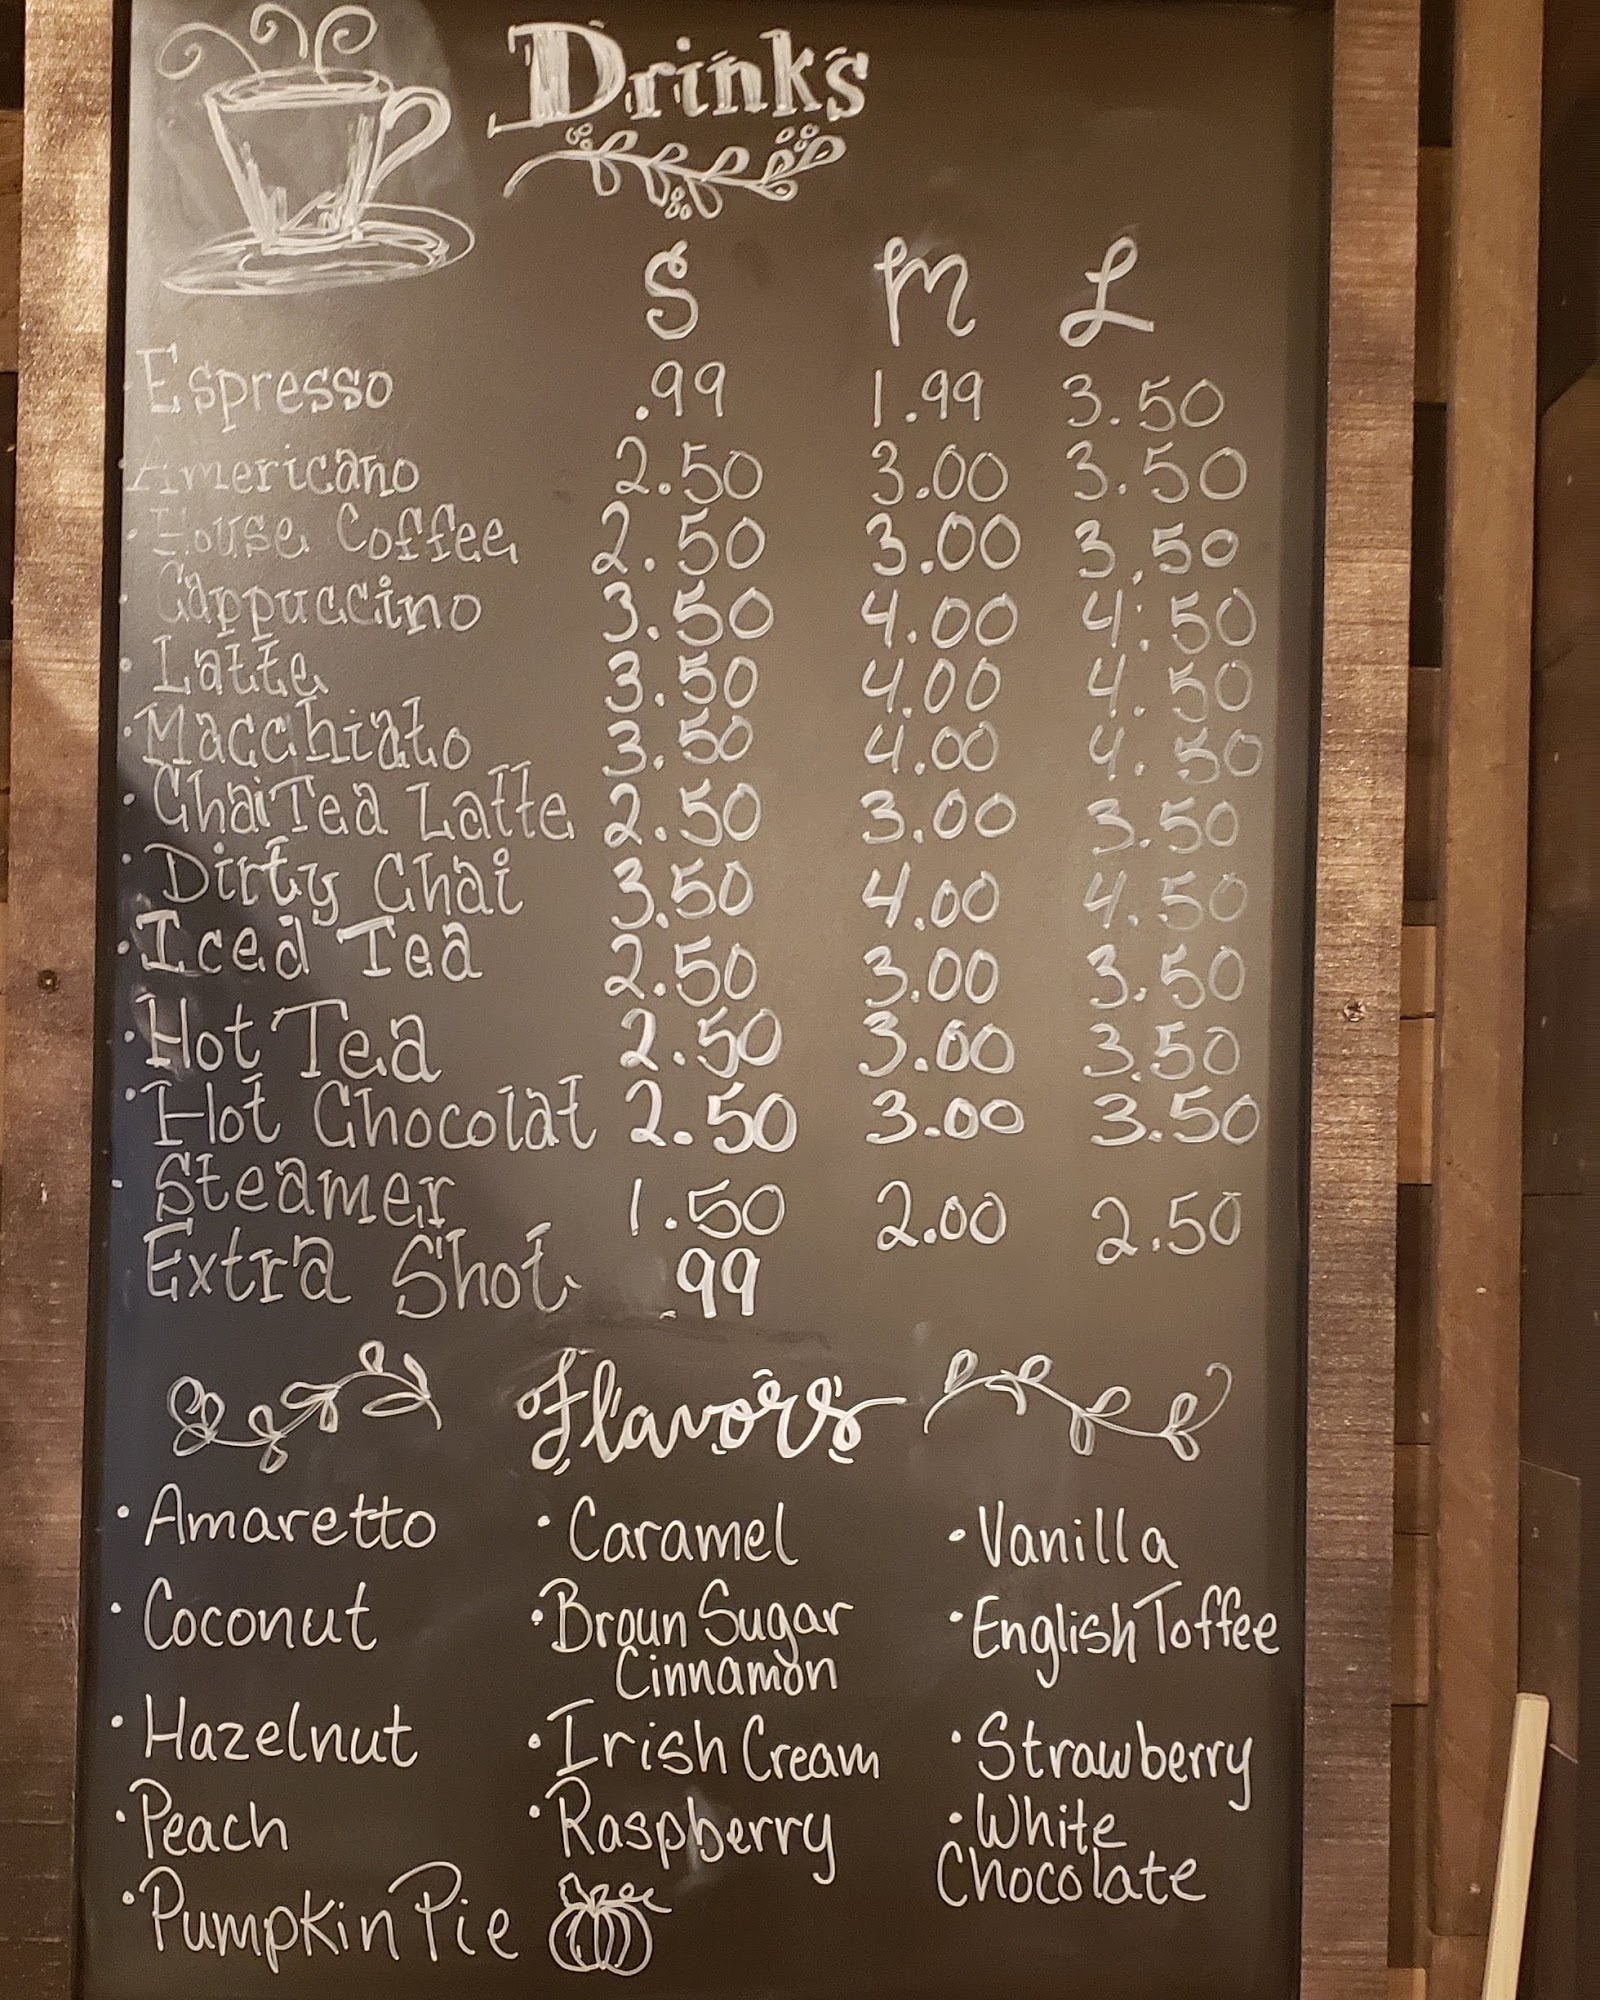 Drinks
S M L
Espresso .99 1.99 3.50
Americano 2.50 3.00 3.50
House Coffee 2.50 3.00 3.50
Cappuccino 3.50 4.00 4.50
Latte 3.50 4.00 4.50
Macchiato 3.50 4.00 4.50
Chai Tea Latte 2.50 3.00 3.50
Dirty Chai 3.50 4.00 4.50
Iced Tea 2.50 3.00 3.50
Hot Tea 2.50 3.00 3.50
Hot Chocolat 2.50 3.00 3.50
Steamer 1.50 2.00 2.50
Extra Shot .99
Flavors
Amaretto
Coconut
Hazelnut
Peach
Pumpkin Pie
Caramel
Broun Sugar
Cinnamon
Irish Cream
Raspberry
Vanilla
English Toffee
Strawberry
White
Chocolate